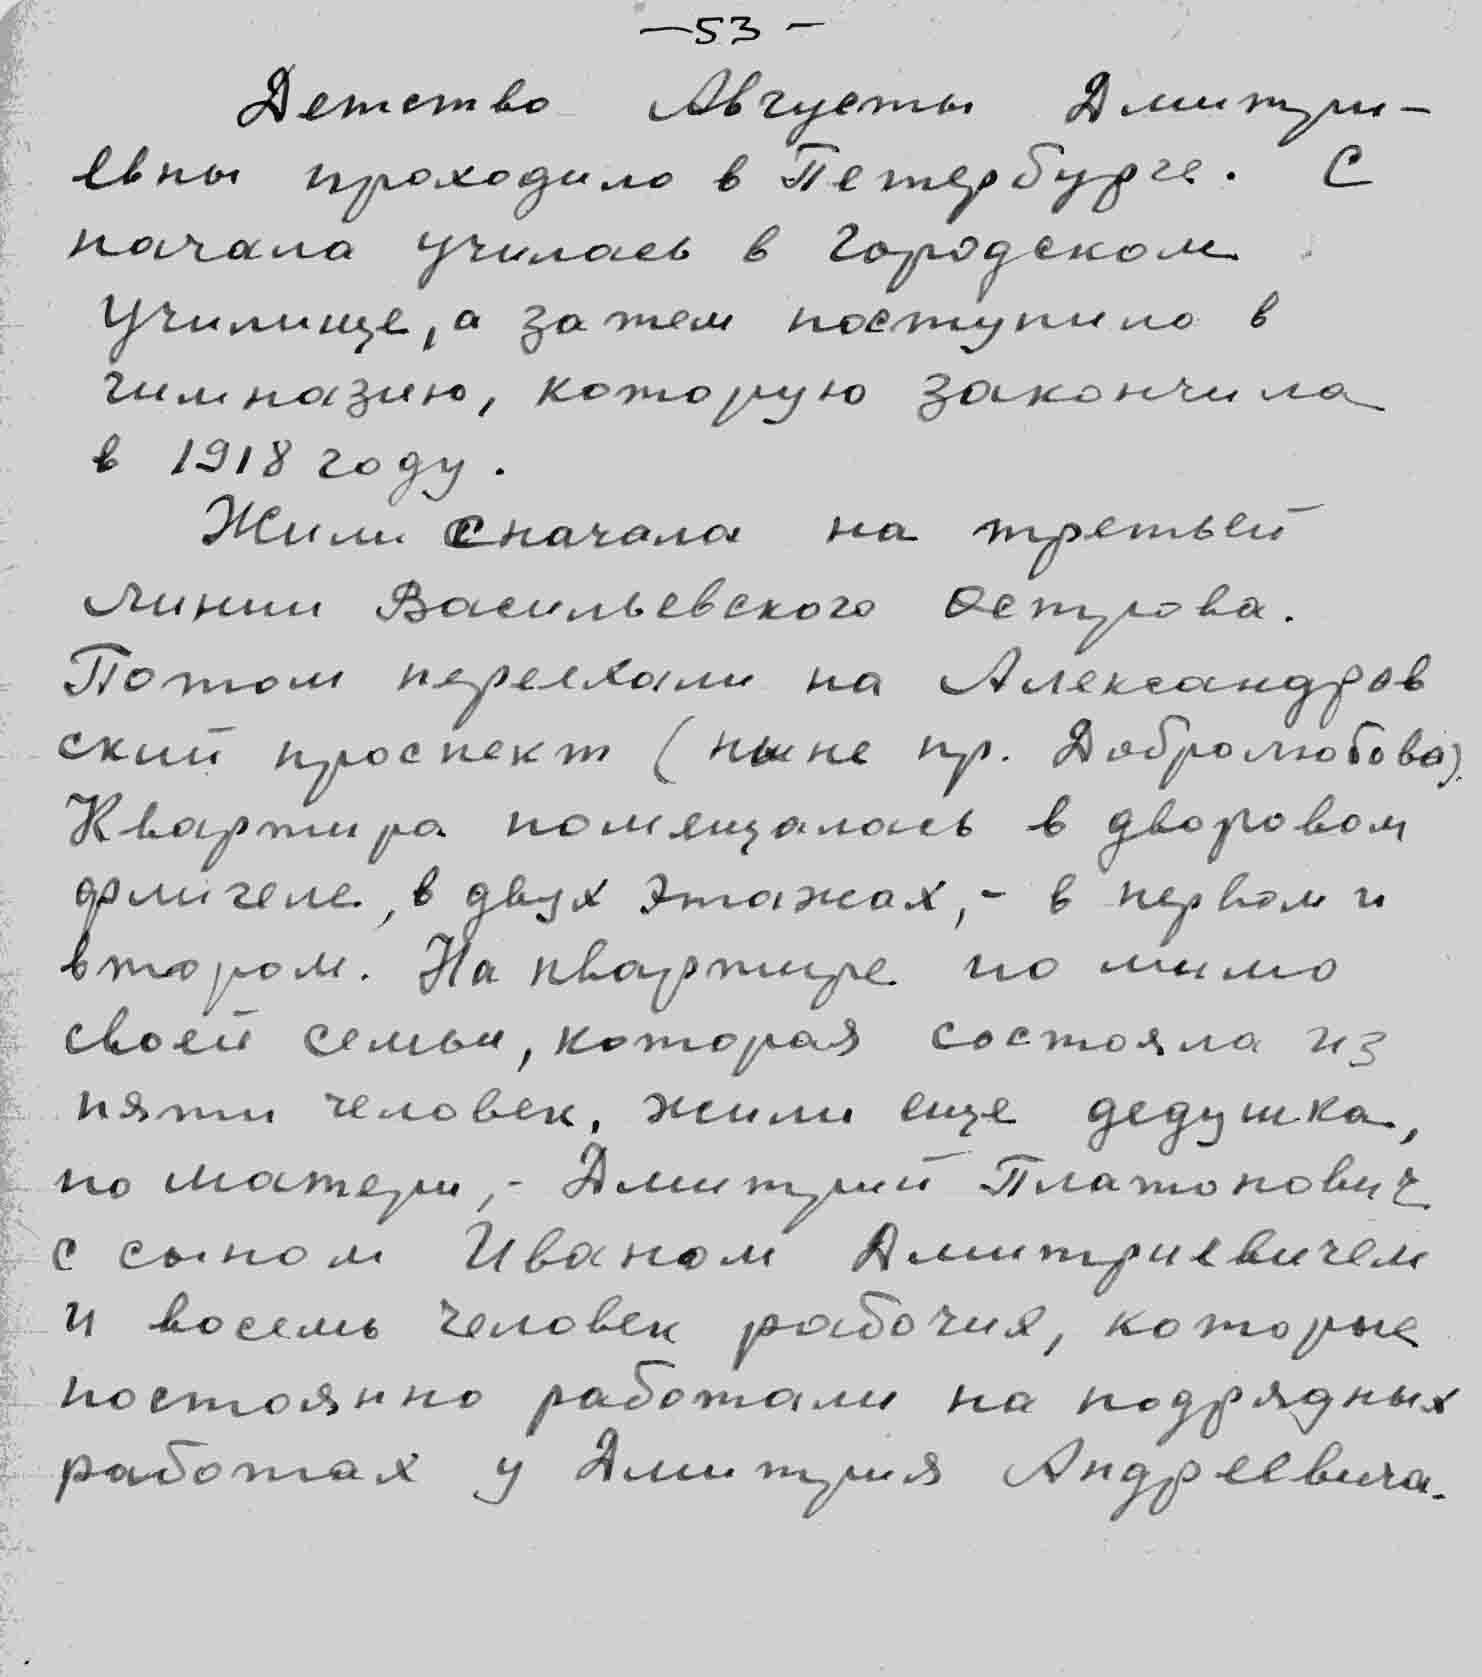 —53—
Детство Августы Дмитри-
евны проходило в Петербурге. С
начала училась в Городском
Училище, а затем поступило в
гимназию, которую закончила
в 1918 году.
Жили сначала на третьей
линии Васильевского Острова.
Потом переехали на Александров
ский проспект (ныне пр. Добролюбова).
Квартира помещалась в дворовом
флигеле, в двух этажах, - в первом и
втором. На квартире по мимо
своей семьи, которая состояла из
пяти человек, жили еще дедушка,
по матери, - Дмитрий Платонович
с сыном Иваном Дмитриевичем
и восемь человек рабочих, которые
постоянно работали на подрядных
работах у Дмитрия Андреевича.